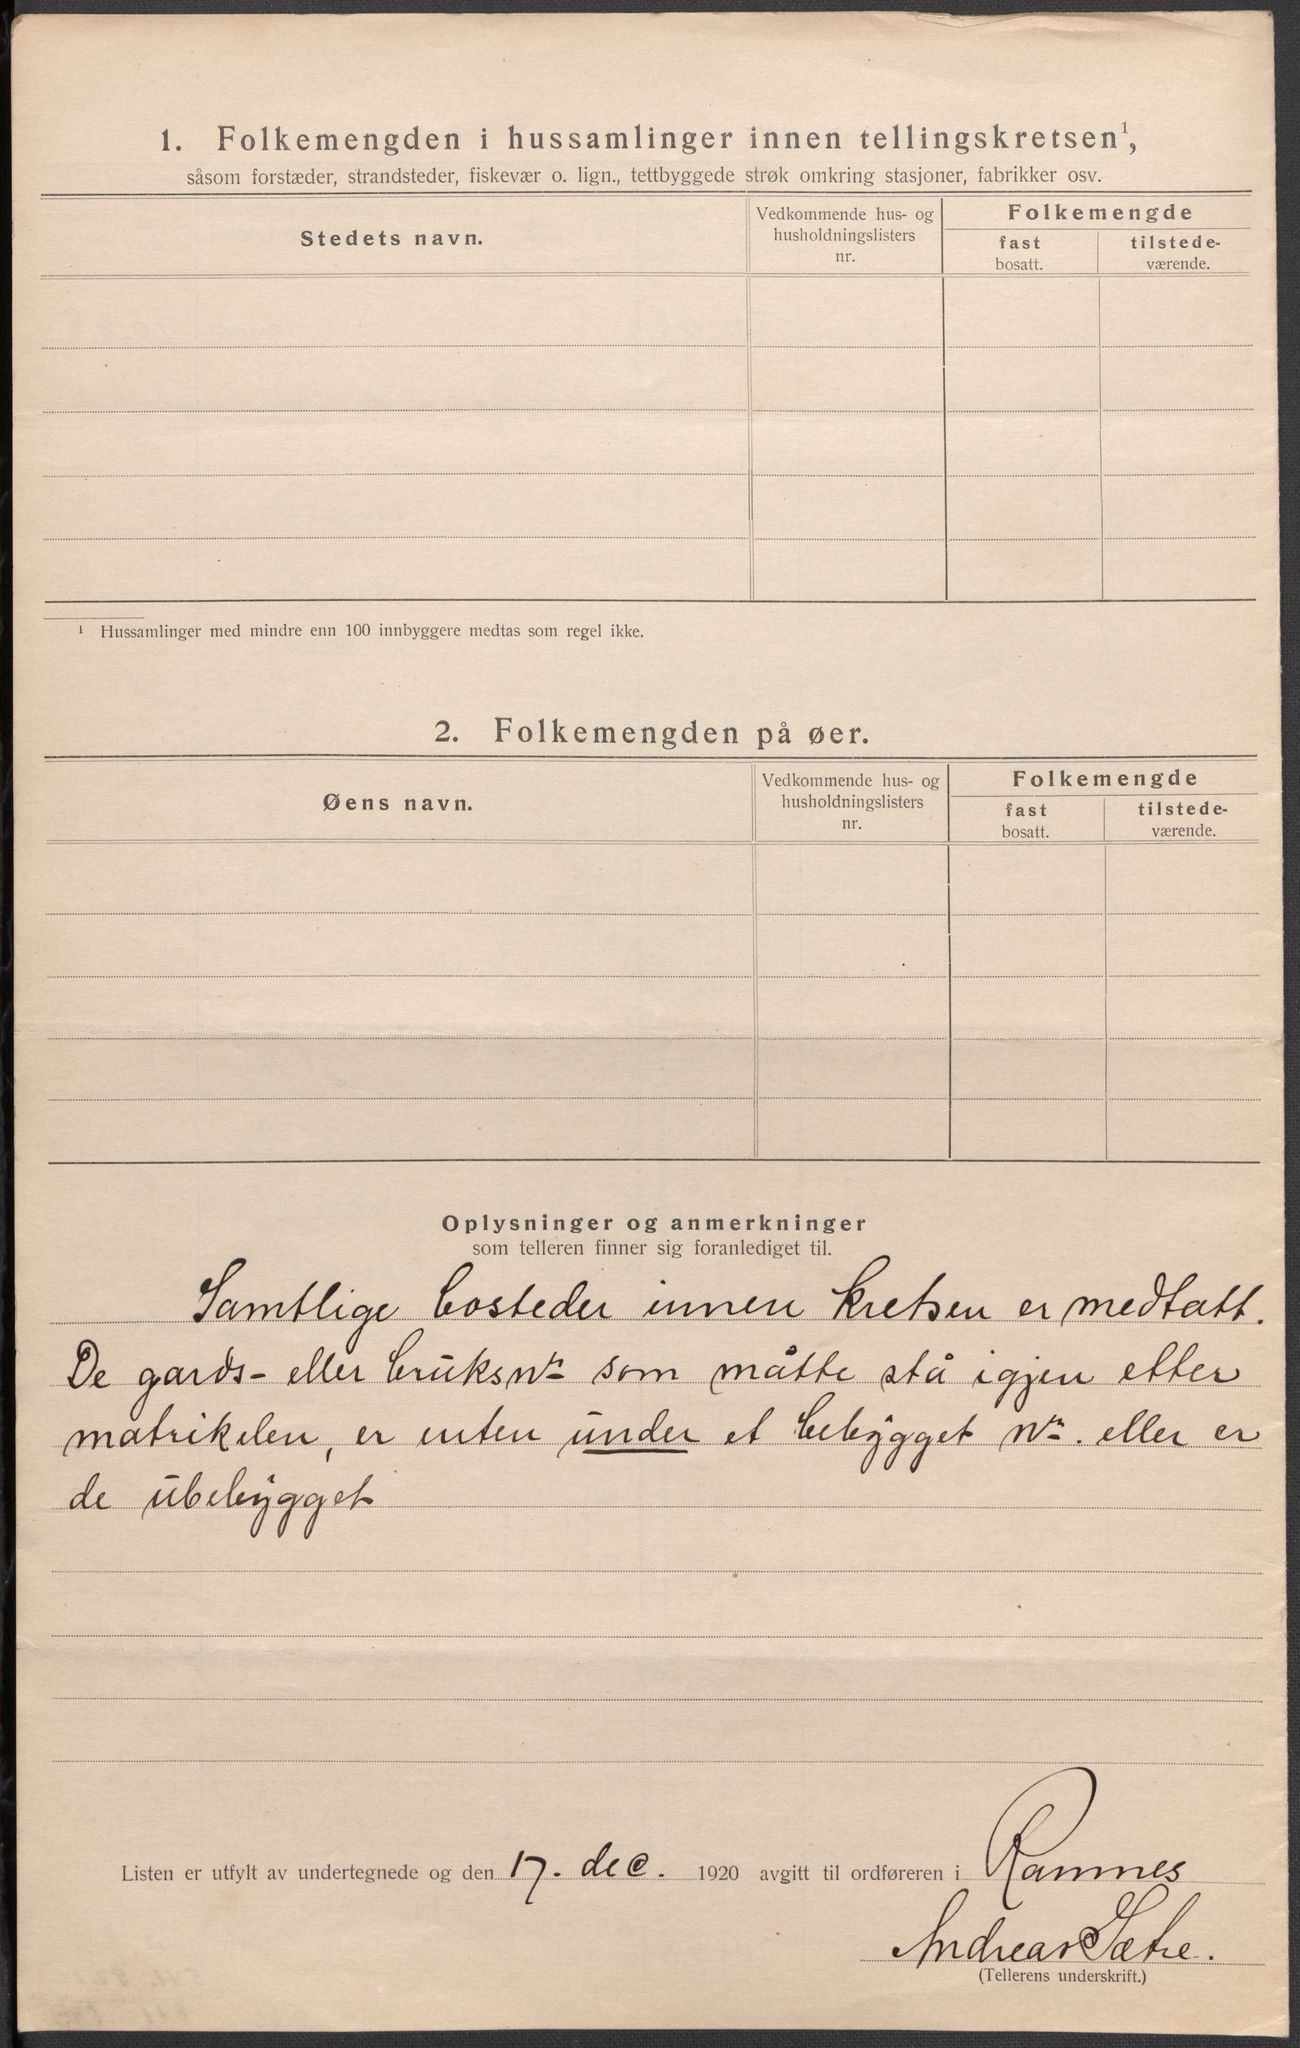 1. Folkemengden i hussamlinger innen tellingskretsen¹,
såsom forstæder, strandsteder, fiskevær o. lign., tettbyggede strøk omkring stasjoner, fabrikker osv.
Stedets navn.
Vedkommende hus- og
husholdningslisters
nr.
Folkemengde
fast
bosatt.
tilstede-
værende.
¹ Hussamlinger med mindre enn 100 innbyggere medtas som regel ikke.
2. Folkemengden på øer.
Øens navn.
Vedkommende hus- og
husholdningslisters
nr.
Folkemengde
fast
bosatt.
tilstede-
værende.
Oplysninger og anmerkninger
som telleren finner sig foranlediget til.
Samtlige bosteder innen kretsen er medtatt.
De gards- eller bruksnr som måtte stå igjen etter
matrikelen, er enten under et bebygget nr. eller er
de ubebygget
Listen er utfylt av undertegnede og den 17. dec. 1920 avgitt til ordføreren i Ramnes
Andreas Sætre.
(Tellerens underskrift.)